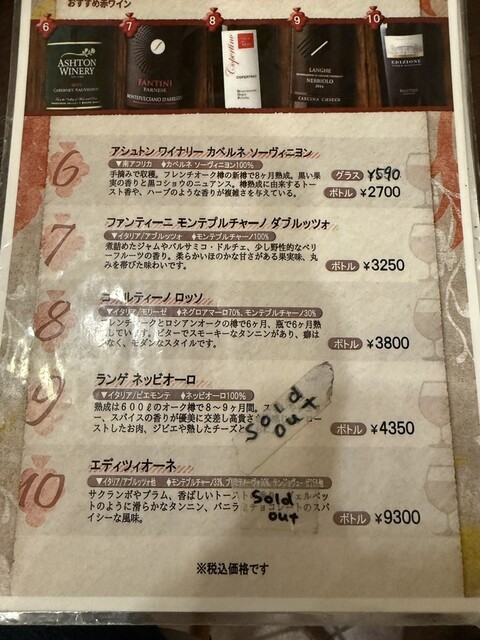 おすすめ赤ワイン
6 7 8 9 10
ASHTON
WINERY
CABERNET SAUVIGNON
FANTINI
FARNESE
MONTEPULCIANO D'ABRUZZO
Copertino
COPERTINO
LANGHE
NEBBIOLO
CASCINA CHICCO
EDIZIONE
6
アシュトン ワイナリー カベルネ ソーヴィニヨン
▼南アフリカ ♦カベルネ ソーヴィニヨン100%
手摘みで収穫。フレンチオーク樽の新樽で8ヶ月熟成。黒い果
実の香りと黒コショウのニュアンス。樽熟成に由来するトー
スト香や、ハーブのような香りが複雑さを与えている。
グラス ¥590
ボトル ¥2700
7
ファンティーニ モンテプルチャーノ ダブルッツォ
▼イタリア/アブルッツォ ♦モンテプルチャーノ100%
煮詰めたジャムやバルサミコ・ドルチェ、少し野性的なベリ
ーフルーツの香り。柔らかいほのかな甘さがある果実味、丸
みを帯びた味わいです。
ボトル ¥3250
8
ルティーノ ロッソ
▼イタリア/モリーゼ ♦ネグロアマーロ70%、モンテプルチャーノ30%
レンチオークとロシアンオークの樽で6ヶ月、瓶で6ヶ月熟
しています。ビターでスモーキーなタンニンがあり、癖は
なく、モダンなスタイルです。
ボトル ¥3800
9
ランゲ ネッビオーロ
▼イタリア/ピエモンテ ♦ネッビオーロ100%
熟成は600ℓのオーク樽で8〜9ヶ月間。ス
ー、スパイスの香りが優美に交差し高貴さ
ーストしたお肉、ジビエや熟したチーズと
Sold
out
ボトル ¥4350
10
エディツィオーネ
▼イタリア/アブルッツォ他 ♦モンテプルチャーノ33%、プリミティーヴォ30%、サンジョヴェーゼ25%他
サクランボやプラム、香ばしいトースト
ェルベッ
トのように滑らかなタンニン、バニラ
チョコレートのスパ
イシーな風味。
Sold
out
ボトル ¥9300
※税込価格です